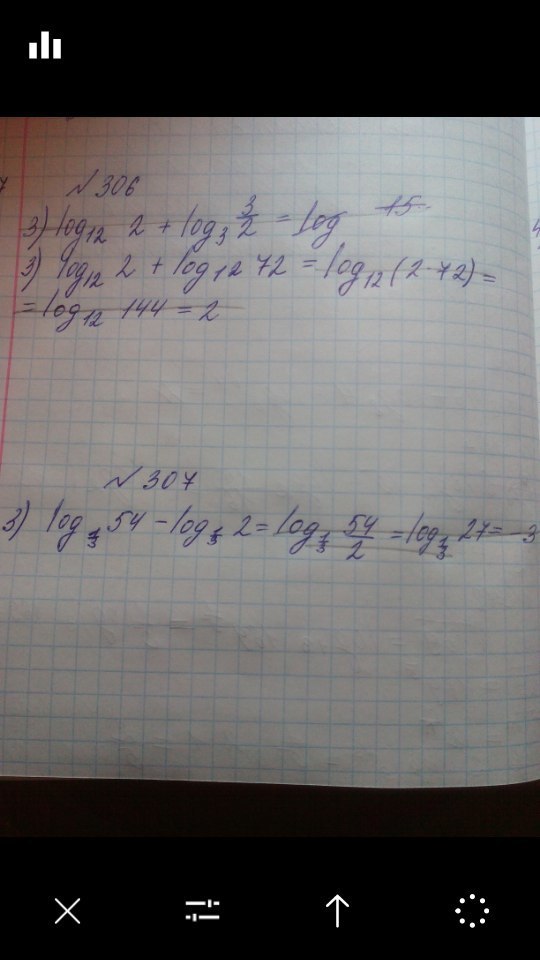 №306
3) log₁₂ 2 + log₃ 3/2 = log 15
3) log₁₂ 2 + log₁₂ 72 = log₁₂ (2 72) =
= log₁₂ 144 = 2
№307
3) log_1/3 54 - log_1/3 2 = log_1/3 54/2 = log_1/3 27 = -3